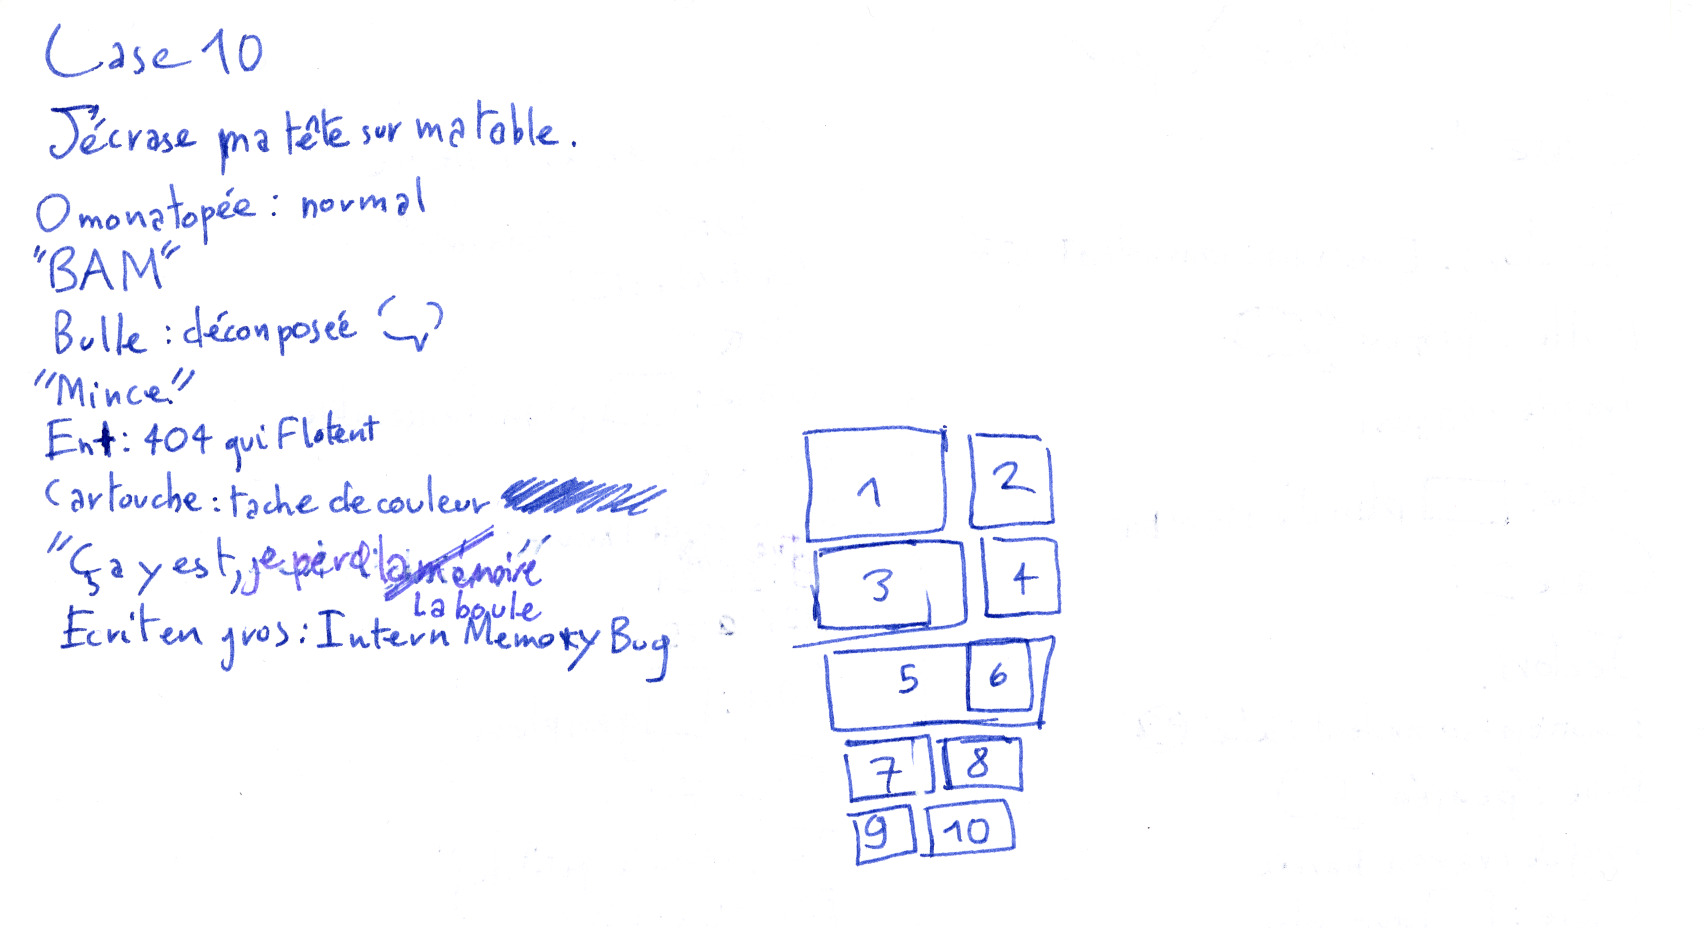 Case 10
J'écrase ma tête sur ma table.
Omonatopée : normal
"BAM"
Bulle : décomposeé
"Mince."
Ent : 404 qui Flotent
Cartouche : tache de couleur
"Ça y est, je perd la mémoire"
La boule
Ecrit en gros : Intern Memory Bug
1 2
3 4
5 6
7 8
9 10